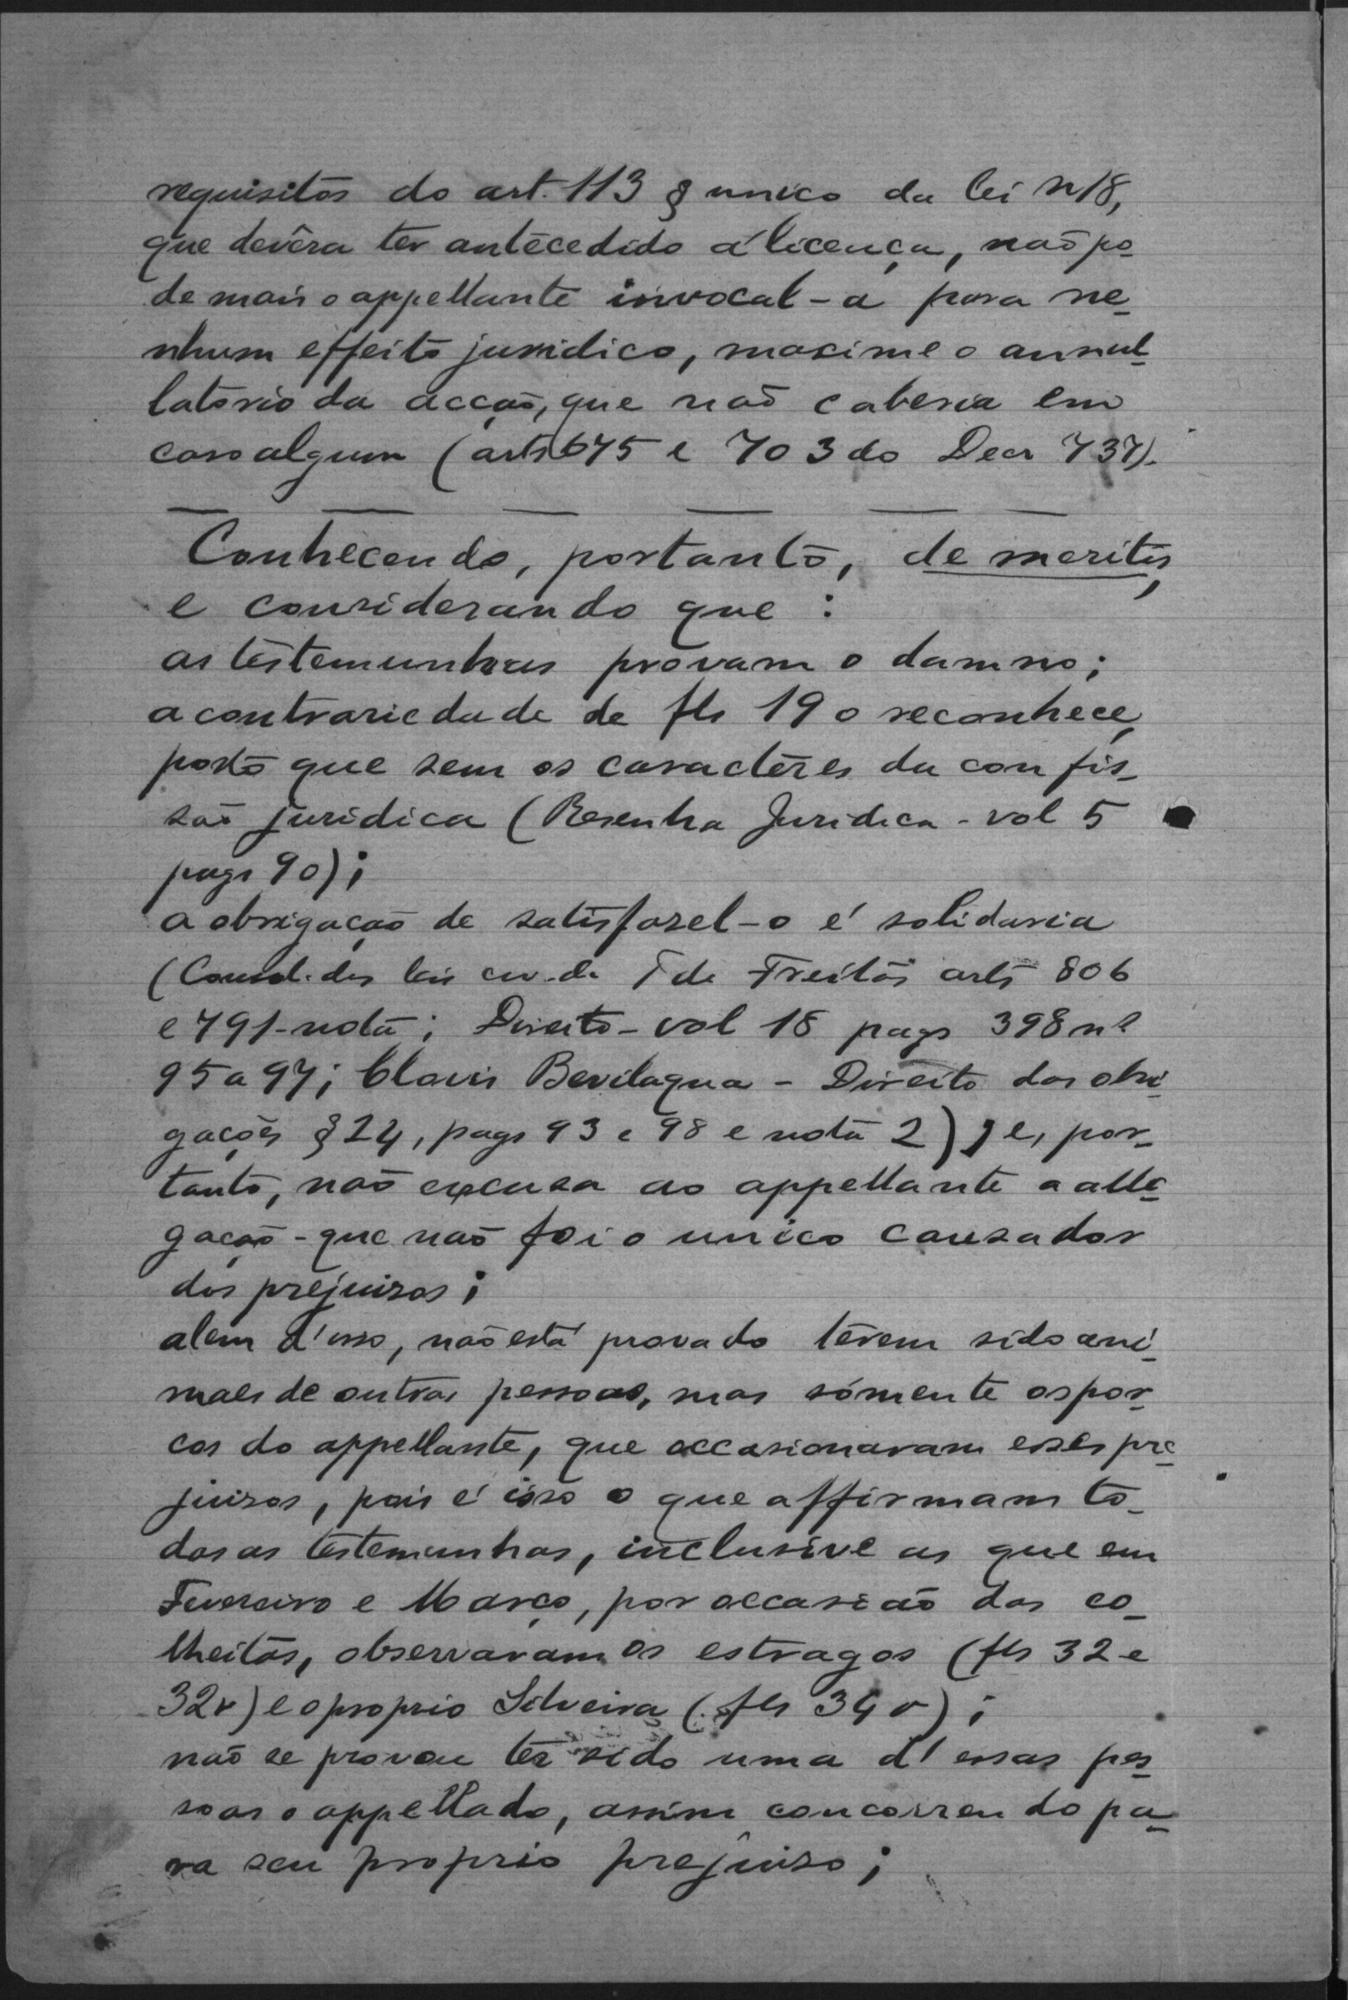 requisitos do art. 113 § unico da lei n 18,
que devêra ter antecedido á licença, não po-
de mais o appellante invocal-a para ne-
nhum effeito juridico, maxime o annul-
latorio da acção, que não caberia em
caso algum (arts 675 e 703 do Decr 737).
Conhecendo, portanto, de meritis,
e considerando que :
as testemunhas provam o damno;
a contrariedade de fls 19 o reconhece,
posto que sem os caracteres da confis-
são juridica (Resenha Juridica - vol 5
pags 90);
a obrigação de satisfazel-o é solidaria
(Consol. das leis civ. de T de Freitas arts 806
e 791 - nota ; Direito - vol 18 pags 398 ns
95 a 97; Clovis Bevilaqua - Direito das obri-
gações § 24, pags 93 e 98 e nota 2) ; e, por-
tanto, não excusa ao appellante a alle-
gação - que não foi o unico causador
dos prejuizos ;
alem d'isso, não está provado terem sido ani-
maes de outras pessoas, mas sómente os por-
cos do appellante, que occasionaram esses pre-
juizos, pois é isso o que affirmam to-
das as testemunhas, inclusive as que em
Fevereiro e Março, por occasião das co-
lheitas, observaram os estragos (fls 32 e
32v) e o proprio Silveira (fls 34 v) ;
não se provou ter sido uma d'essas pes-
soas o appellado, assim concorrendo pa-
ra seu proprio prejuizo ;